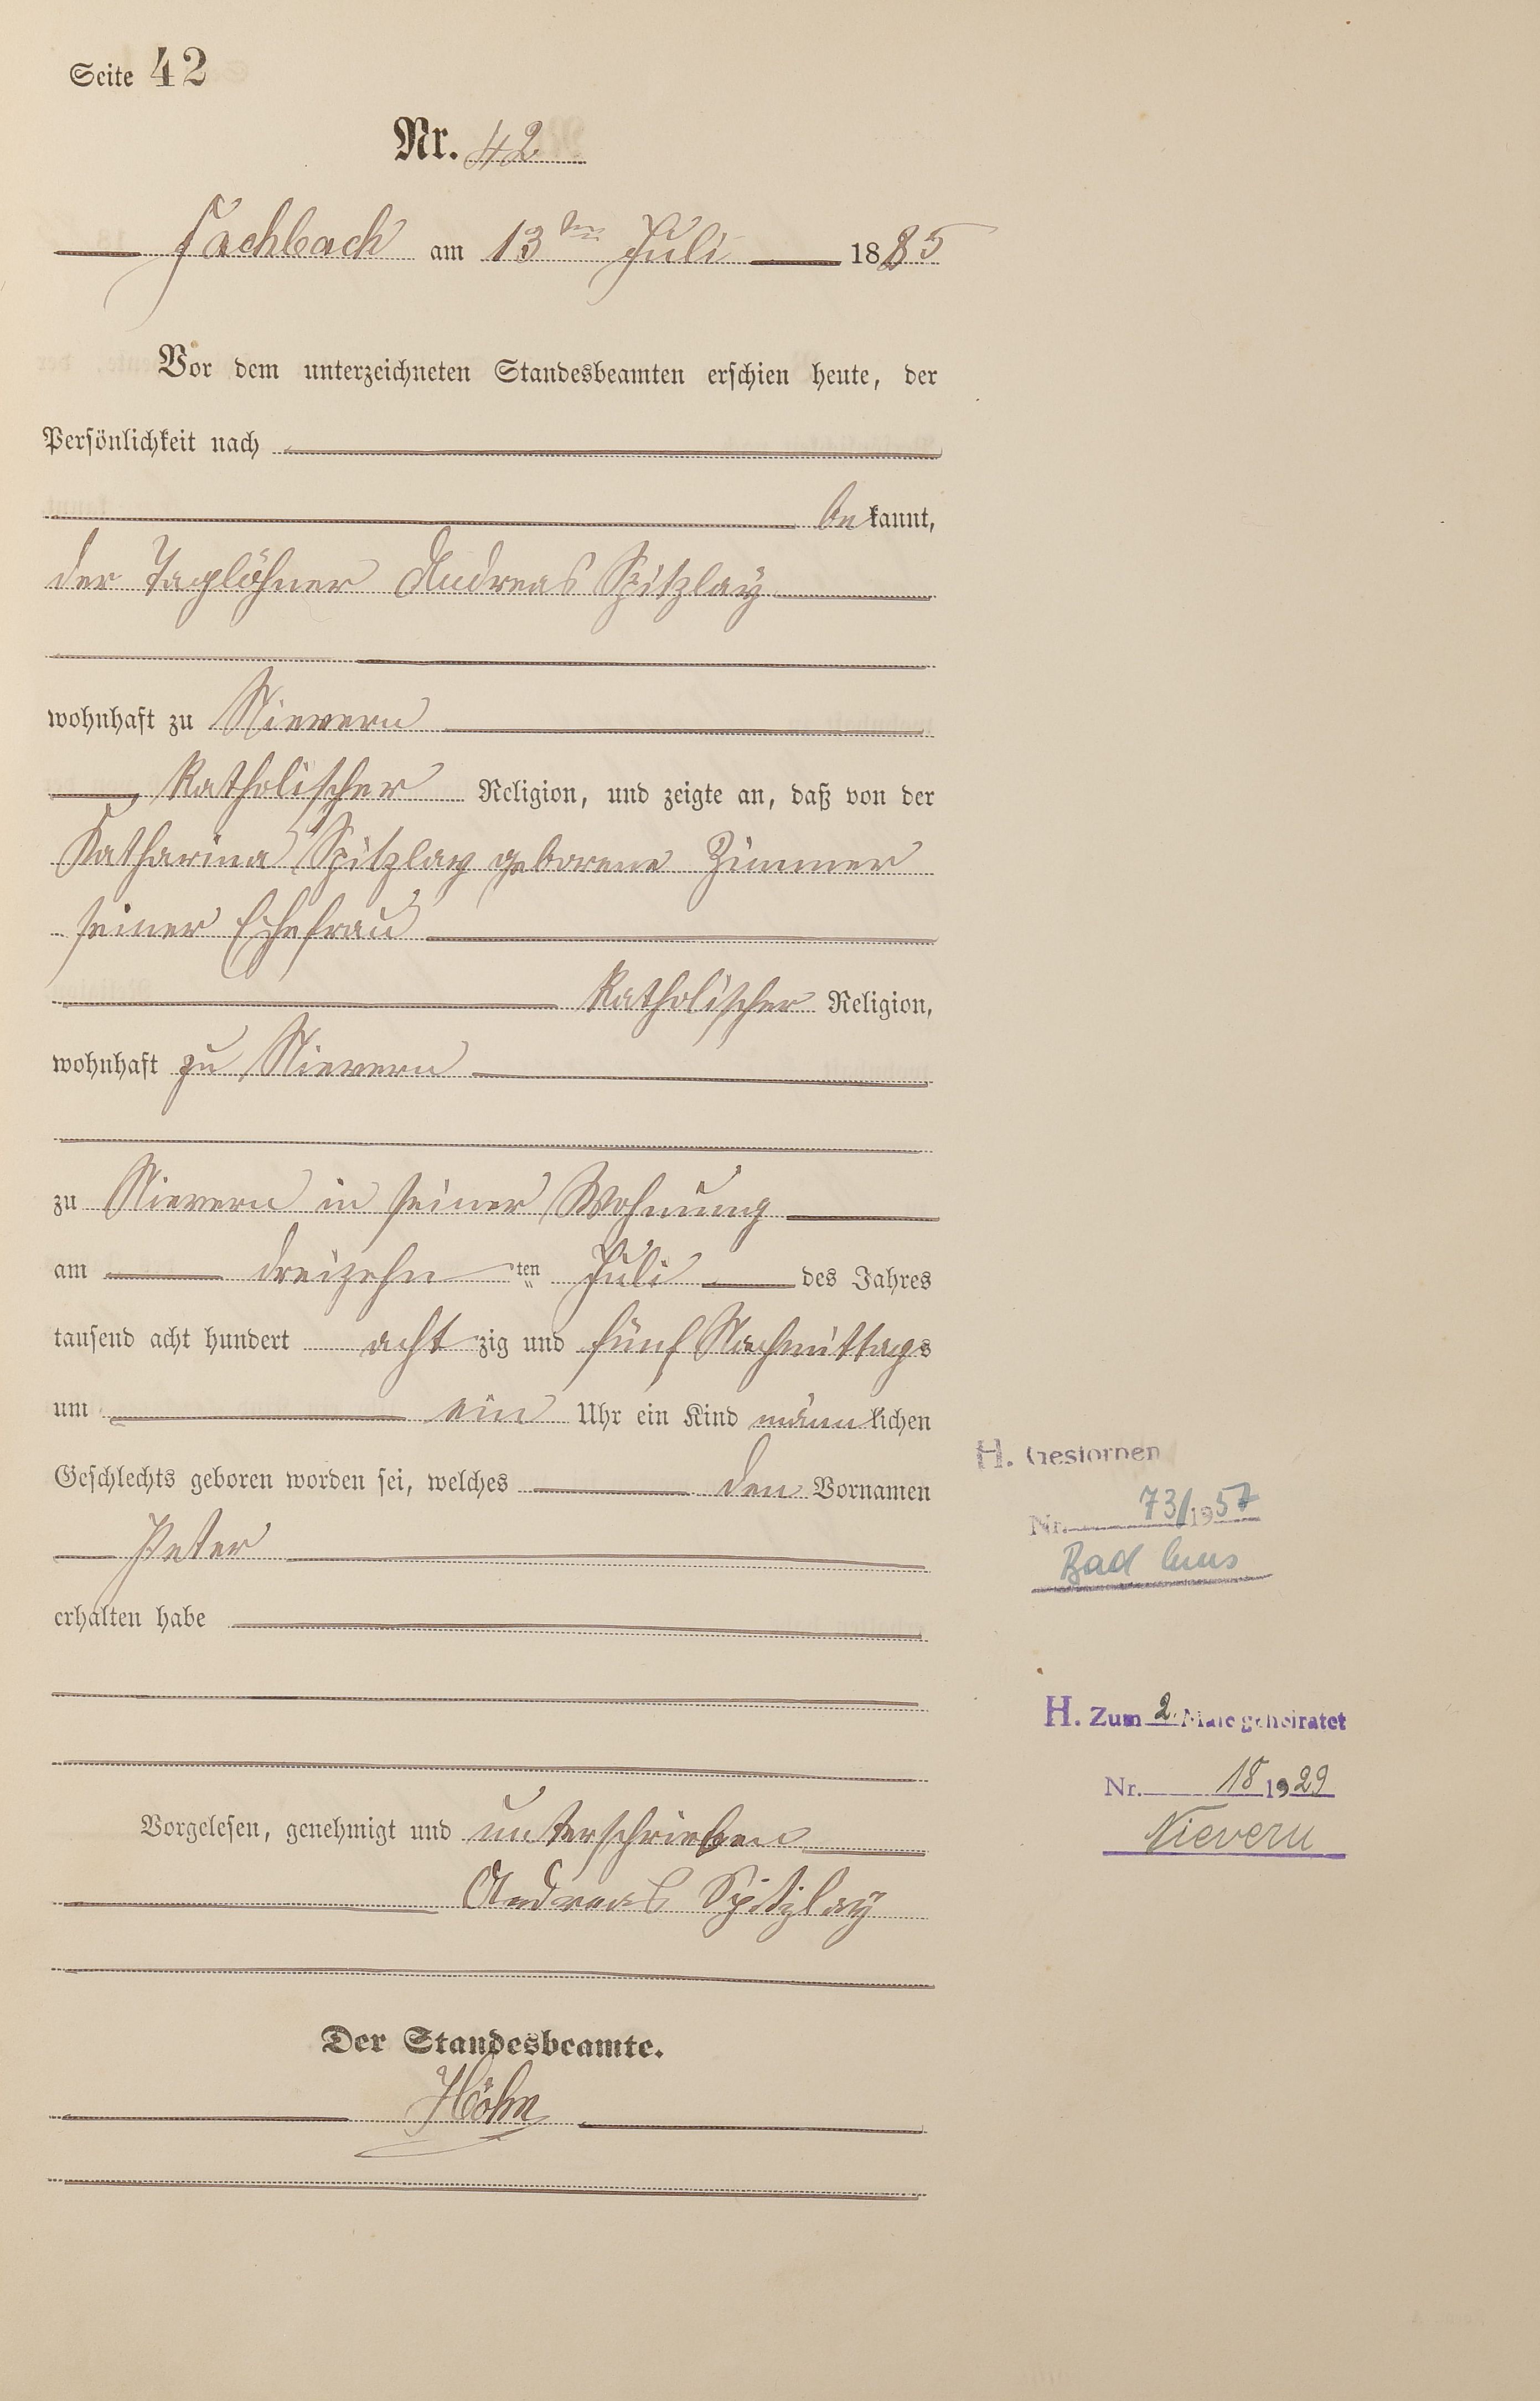 Seite 42
Nr. 42
Fachbach am 13ten Juli 1885
Vor dem unterzeichneten Standesbeamten erschien heute, der
Persönlichkeit nach
bekannt,
der Taglöhner Andreas Spitzlay
wohnhaft zu Nievern
katholischer Religion, und zeigte an, daß von der
Katharina Spitzlay geborene Zimmer
seiner Ehefrau
katholischer Religion,
wohnhaft zu Nievern
zu Nievern in seiner Wohnung
am dreizehn ten Juli des Jahres
tausend acht hundert achtzig und fünf Nachmittags
um ein Uhr ein Kind männlichen
Geschlechts geboren worden sei, welches den Vornamen
Peter
erhalten habe
Vorgelesen, genehmigt und unterschrieben
Andreas Spitzlay
Der Standesbeamte.
Höhn
H. Gestorben
Nr. 73/1957
Bad Ems
H. Zum 2. Male geheiratet
Nr. 18 1929
Nievern